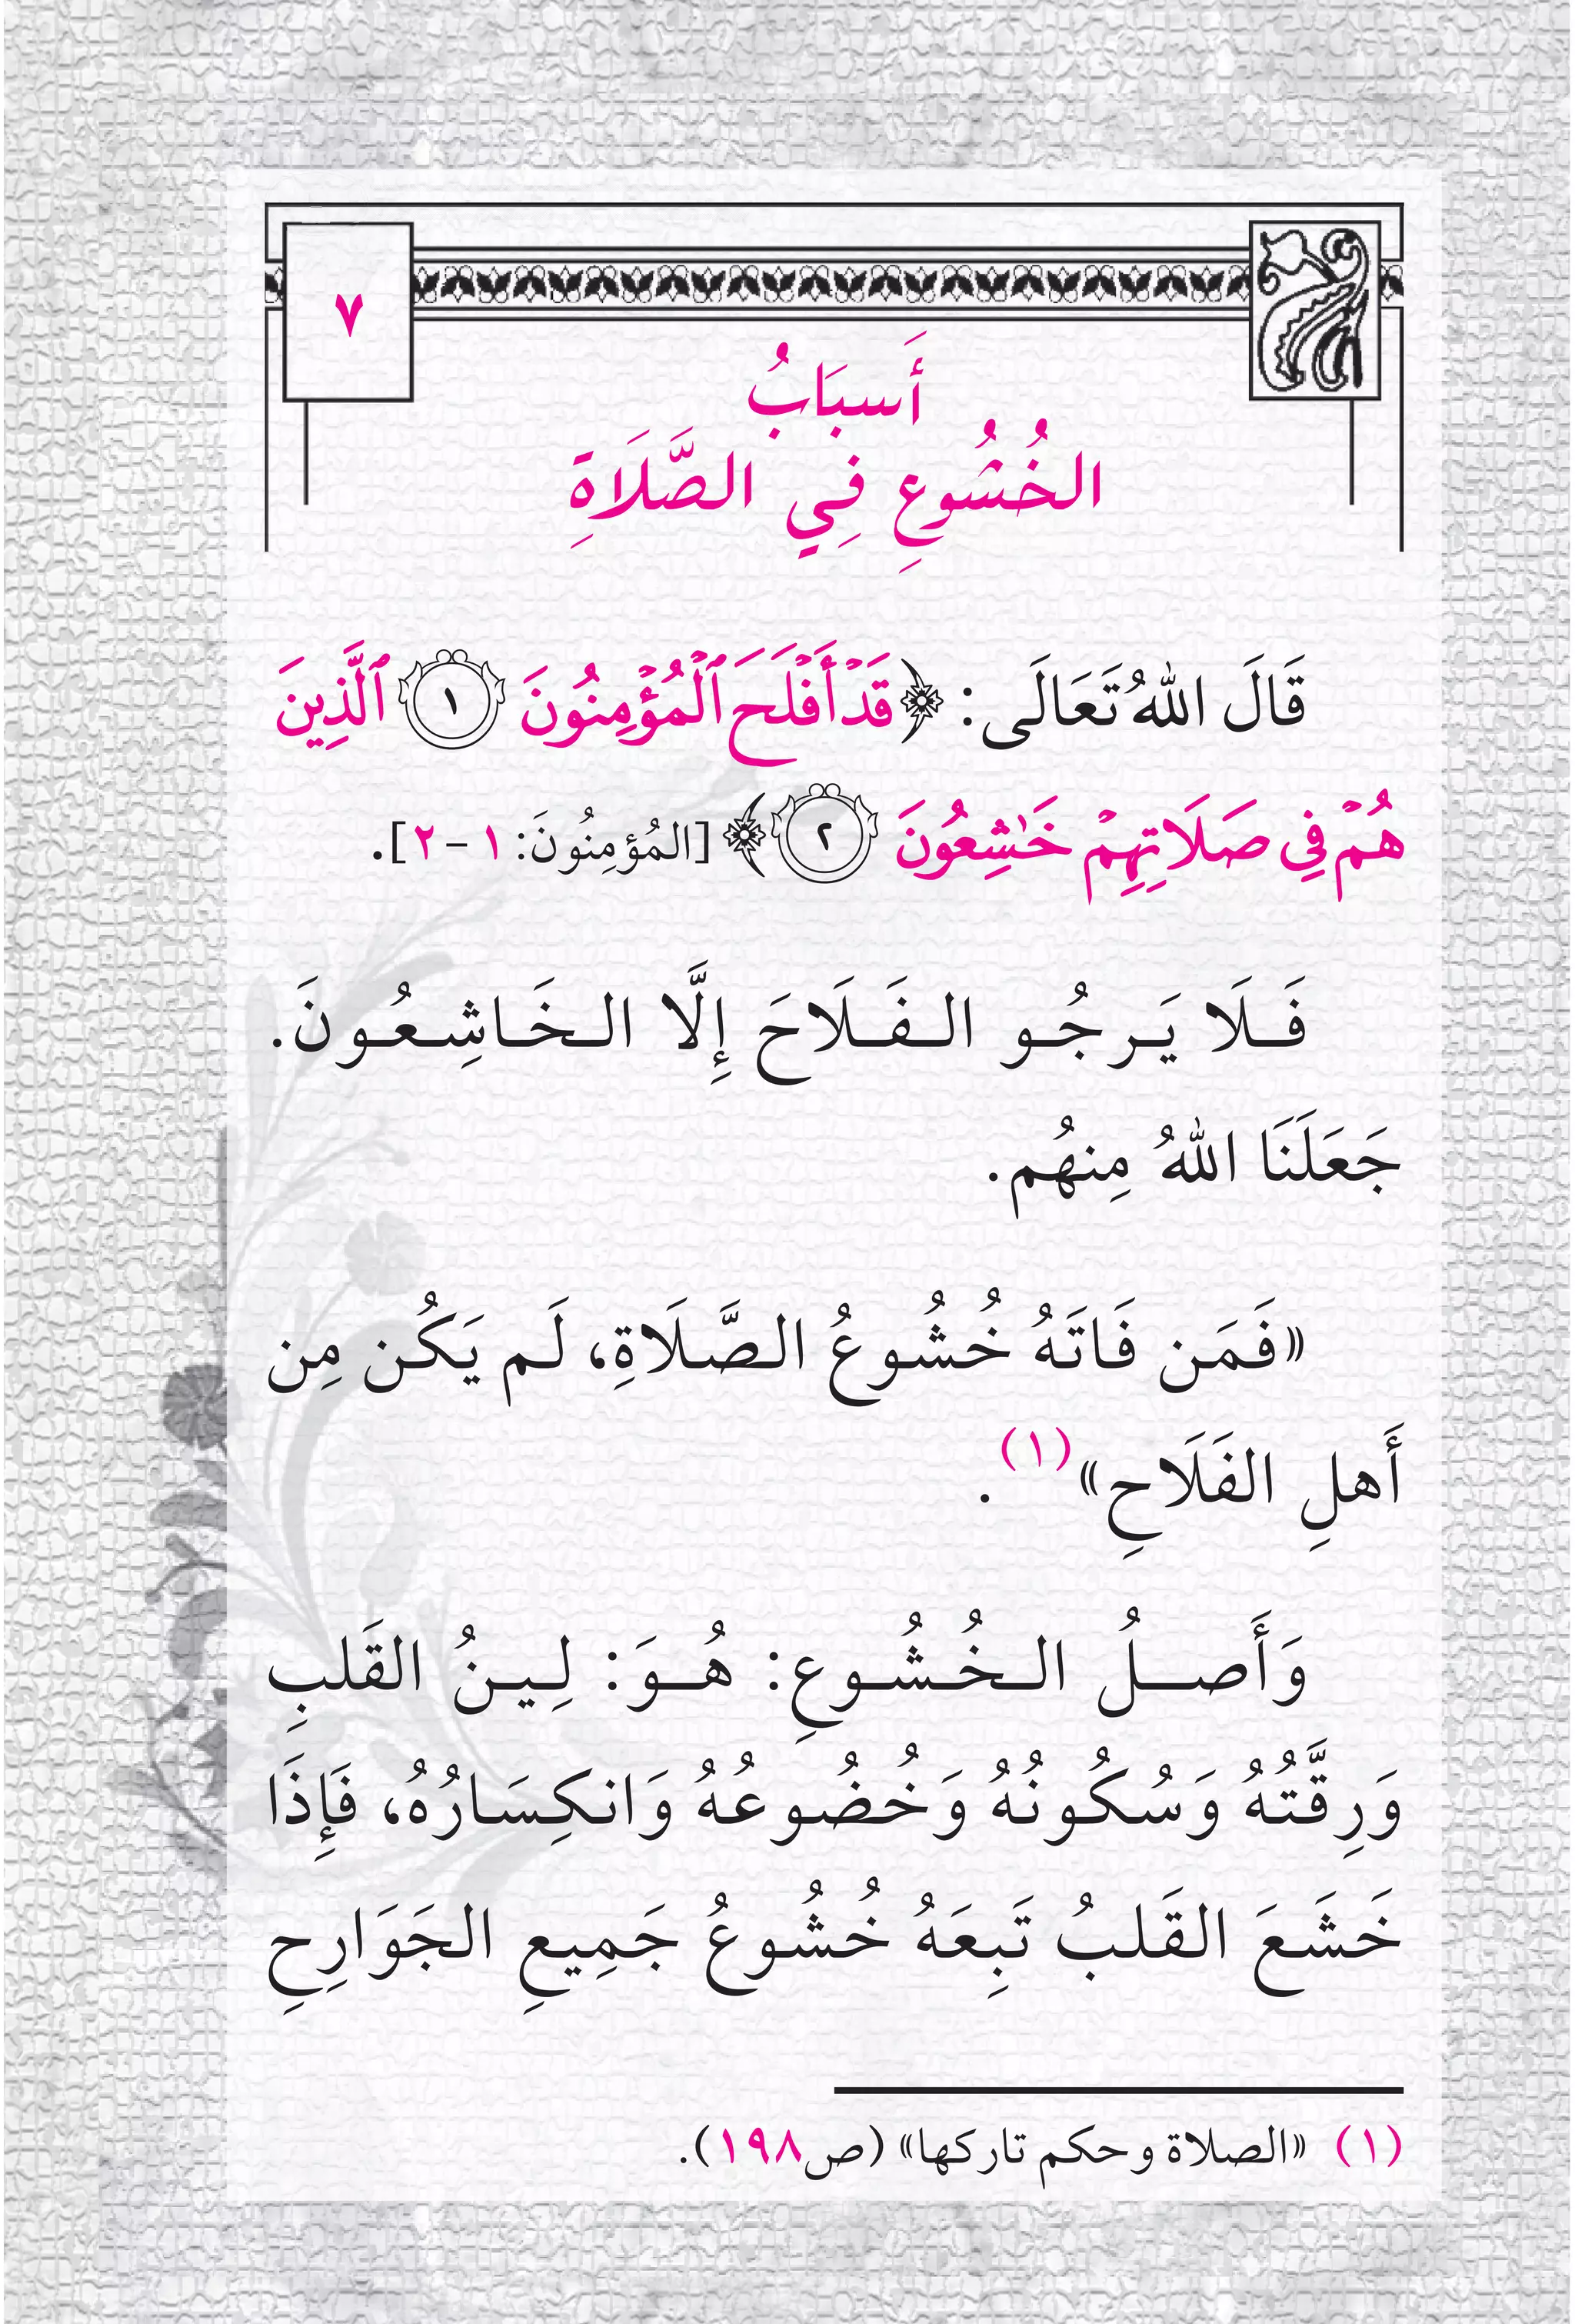 ٧
أَسبَابُ
الخُشُوعِ فِي الصَّلَاةِ
قَالَ اللهُ تَعَالَى: ﴿قَدۡ أَفۡلَحَ ٱلۡمُؤۡمِنُونَ ١ ٱلَّذِينَ
هُمۡ فِي صَلَاتِهِمۡ خَٰشِعُونَ ٢﴾ [المُؤمِنُونَ: ١ - ٢].
فَلَا يَرجُو الفَلَاحَ إِلَّا الخَاشِعُونَ.
جَعَلَنَا اللهُ مِنهُم.
«فَمَن فَاتَهُ خُشُوعُ الصَّلَاةِ، لَم يَكُن مِن
أَهلِ الفَلَاحِ»(١).
وَأَصلُ الخُشُوعِ: هُوَ: لِينُ القَلبِ
وَرِقَّتُهُ وَسُكُونُهُ وَخُضُوعُهُ وَانكِسَارُهُ، فَإِذَا
خَشَعَ القَلبُ تَبِعَهُ خُشُوعُ جَمِيعِ الجَوَارِحِ
(١) «الصلاة وحكم تاركها» (ص١٩٨).